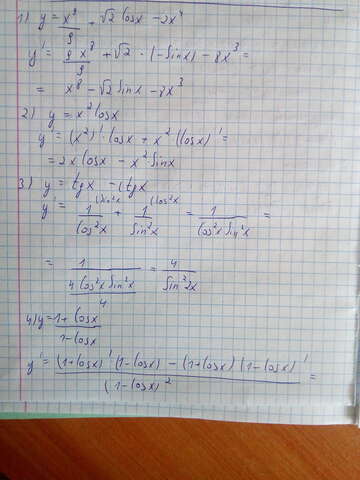 1) y = x⁹/9 + √2 cosx − 2x⁴
y' = 9x⁸/9 + √2 · (−sinx) − 8x³ =
= x⁸ − √2 sinx − 8x³
2) y = x² cosx
y' = (x²)' cosx + x² (cosx)' =
= 2x cosx − x² sinx
3) y = tgx − ctgx
y' = 1/cos²x + 1/sin²x = 1/cos²x sin²x =
= 1/(4cos²x sin²x/4) = 4/sin²2x
4) y = 1+cosx/1−cosx
y' = (1+cosx)'(1−cosx) − (1+cosx)(1−cosx)'/(1−cosx)² =